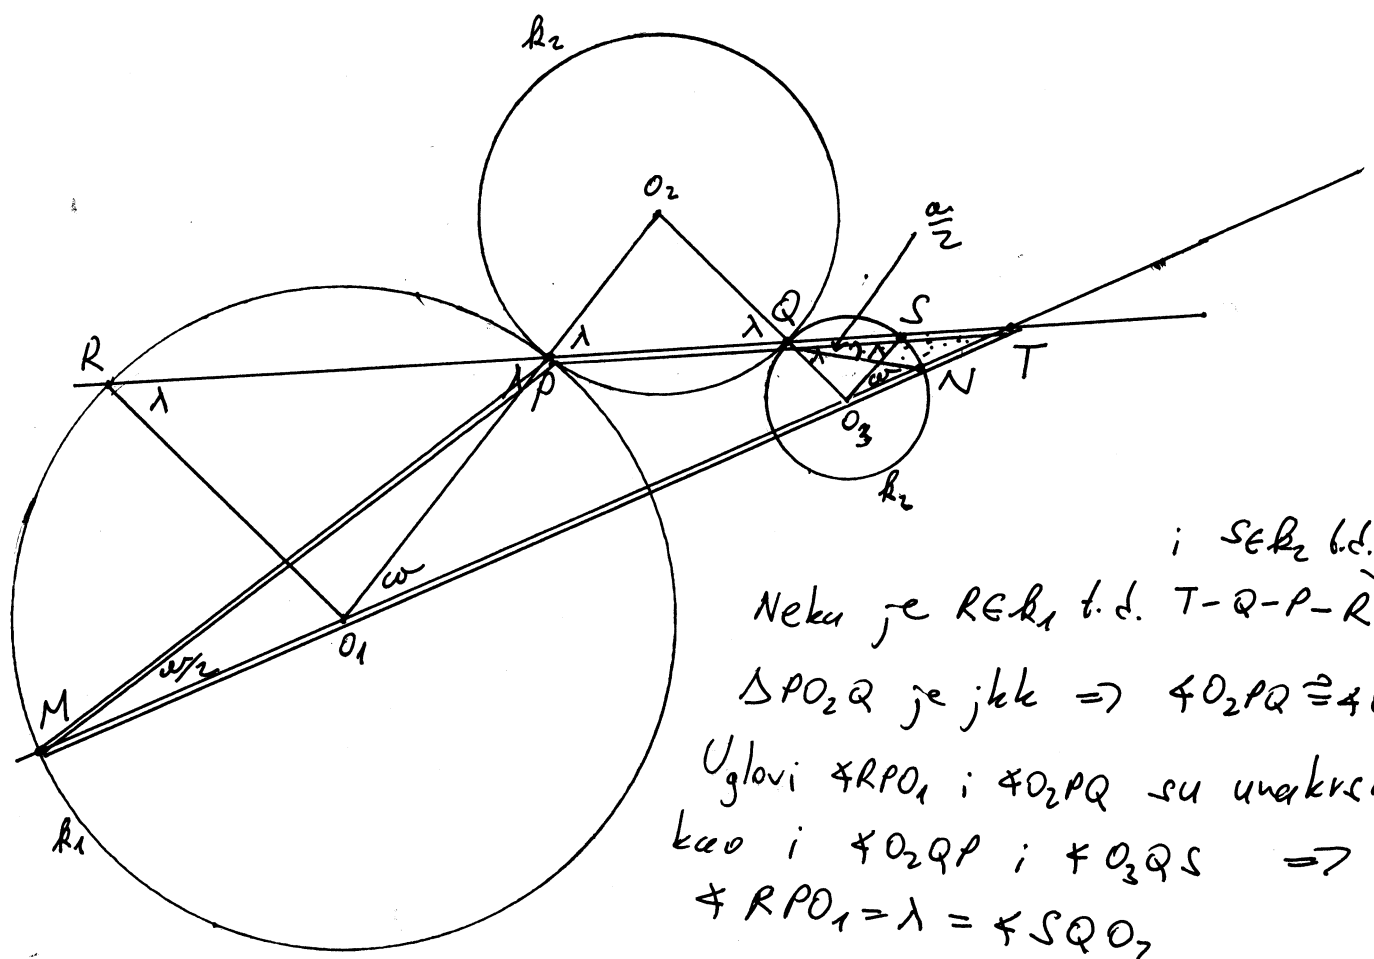 k₂
O₂
α/2
R
λ
λ
λ
Q
S
λ
P
λ
λ
ω
N
T
O₃
k₂
ω
O₁
ω/2
M
k₁
i S∈k₂ t.d.
Neka je R∈k₁ t.d. T-Q-P-R
Δ PO₂Q je jkk => ∢O₂PQ ≅ ∢
Uglovi ∢RPO₁ i ∢O₂PQ su unakrs
kao i ∢O₂QP i ∢O₃QS =>
∢RPO₁ = λ = ∢SQO₃